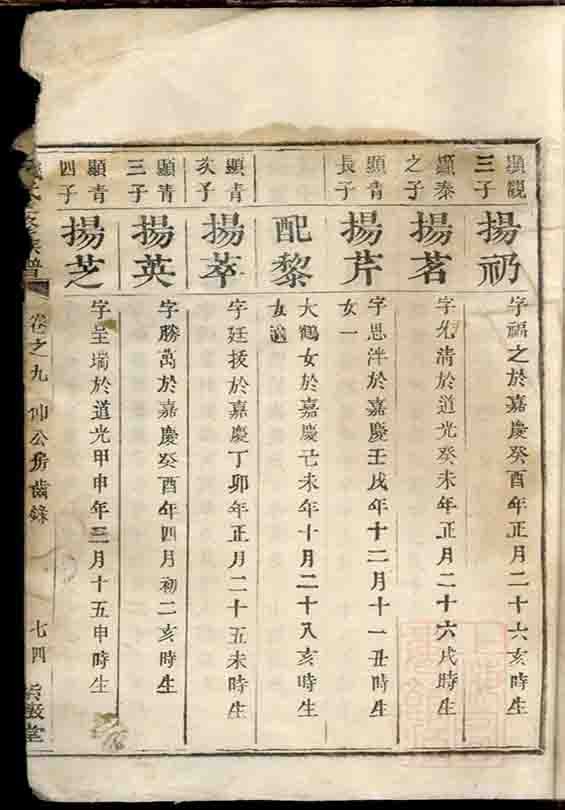 顯覲三子
揚礽
字福之於嘉慶癸酉年正月二十六亥時生
顯秦之子
揚茗
字光清於道光癸未年正月二十六戌時生
顯青長子
揚芹
字思泮於嘉慶壬戌年十二月十一丑時生
女一
配黎
大鶴女於嘉慶己未年十月二十八亥時生
女適
顯青次子
揚萃
字廷拔於嘉慶丁卯年正月二十五未時生
顯青三子
揚英
字勝萬於嘉慶癸酉年四月初二亥時生
顯青四子
揚芝
字呈瑞於道光甲申年三月十五申時生
氏 族譜 卷之九 仙公房齒錄 七四 堂